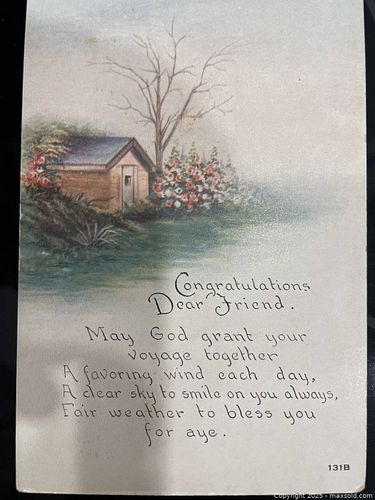 Congratulations
Dear Friend.
May God grant your
voyage together
A favoring wind each day,
A clear sky to smile on you always,
Fair weather to bless you
for aye.
131B
Copyright 2025 - maxsold.com